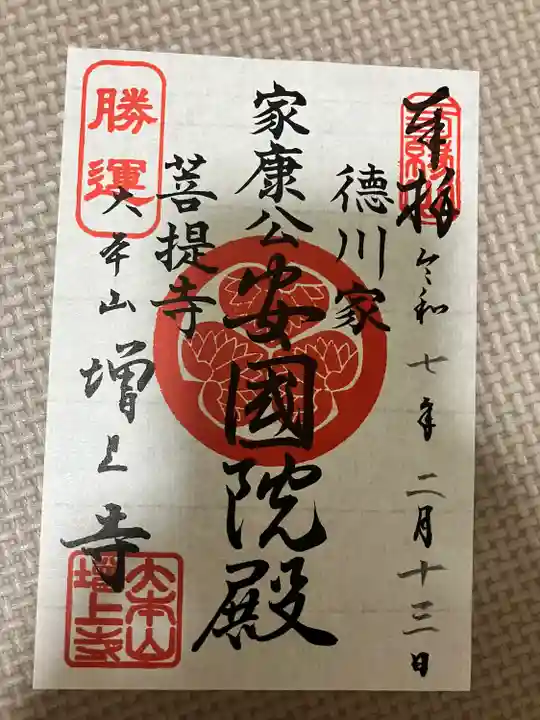 奉拝
令和七年二月十三日
徳川家
家康公
安國院殿
菩提寺
勝運
大本山
増上寺
大本山
増上寺